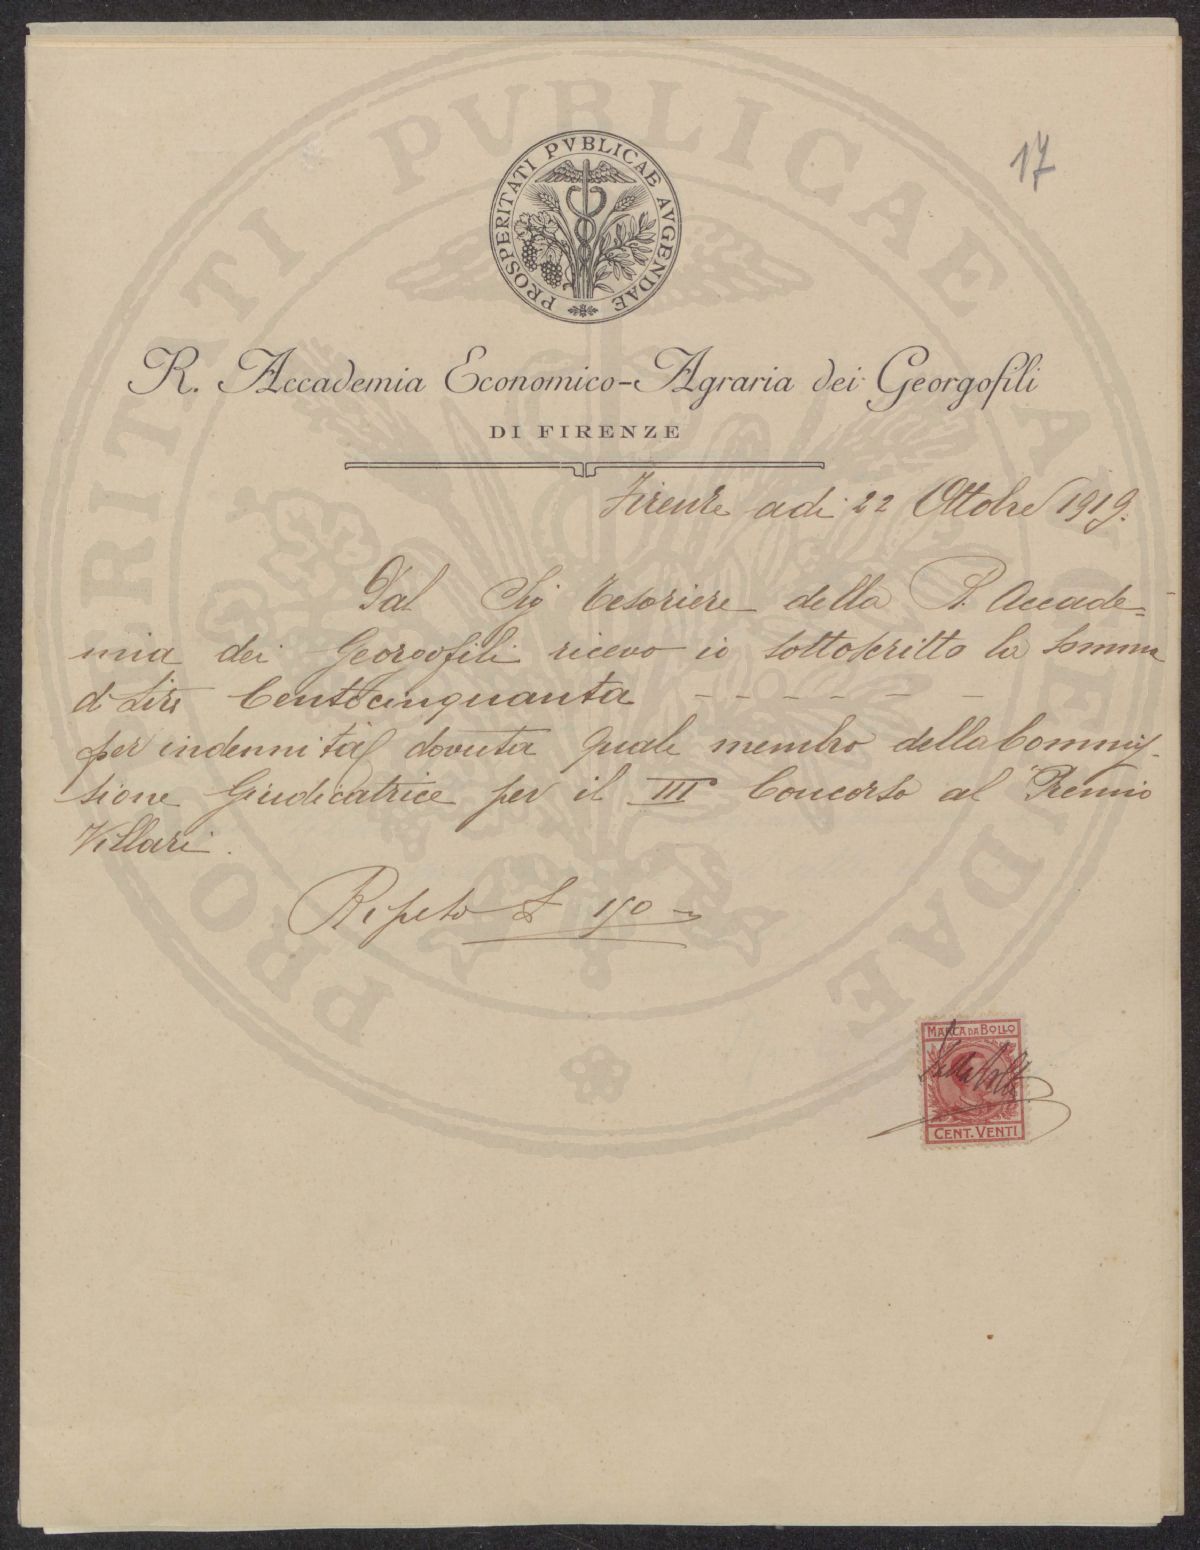 17
PROSPERITATI PVBLICAE AVGENDAE
R. Accademia Economico-Agraria dei Georgofili
DI FIRENZE
Firenze adi 22 Ottobre 1919.
Dal Sig Tesoriere della R. Accade=
mia dei Georgofili ricevo io sottoscritto la somma
di Lire Centocinquanta - - - - - - -
per indennità dovuta quale membro della Commis-
sione Giudicatrice per il III Concorso al Premio
Villari.
Ripeto £ 150
MARCA DA BOLLO
CENT. VENTI